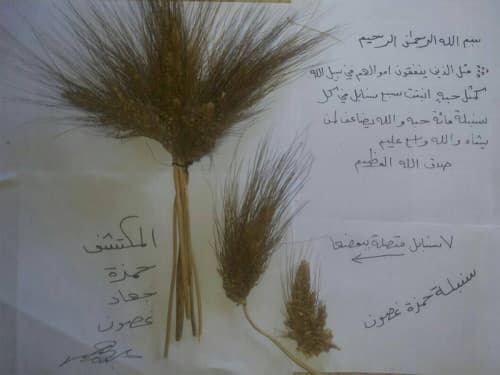 بسم الله الرحمن الرحيم
مثل الذين ينفقون اموالهم في سبيل الله
كمثل حبه انبتت سبع سنابل في كل
سنبلة مائة حبه والله يضاعف لمن
يشاء والله واسع عليم
صدق الله العظيم
٧ سنابل متصلة ببعضها
سنبلة حمزة غصون
المكتشف
حمزة
جهاد
غصون